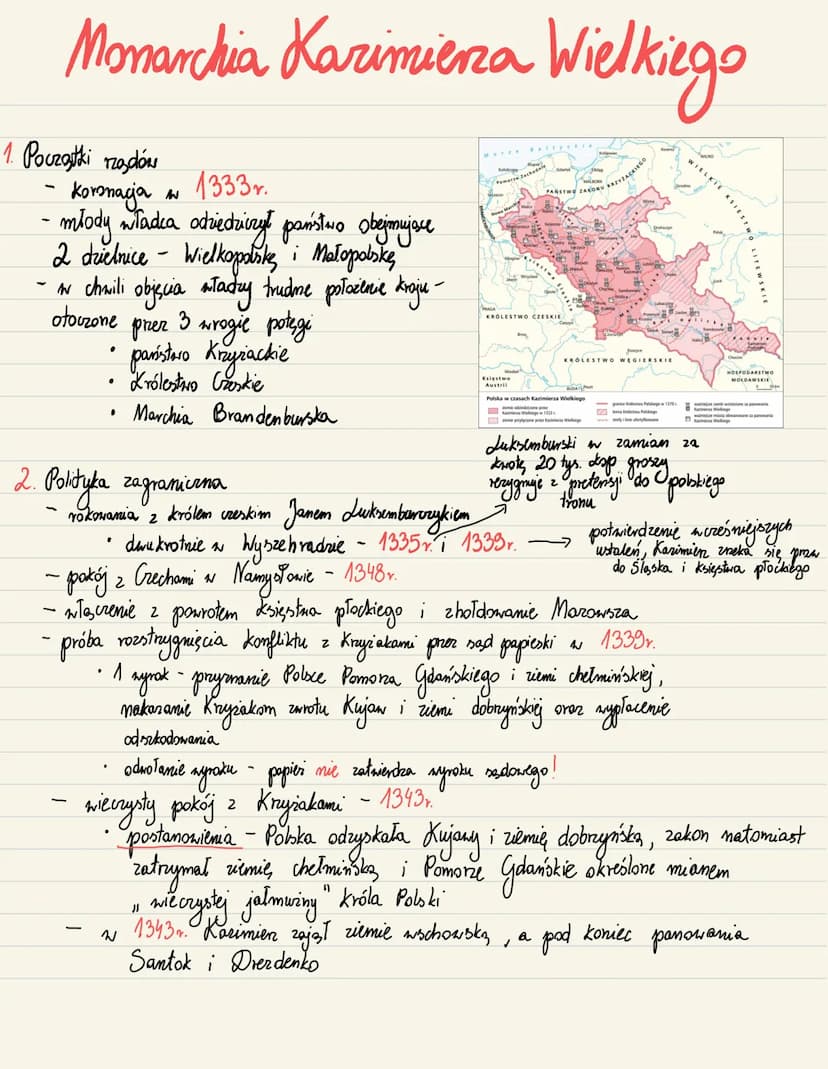 Monarchia Kazimierza Wielkiego
1. Początki rządów
- koronacja w 1333r.
- młody władca odziedziczył państwo obejmujące
2 dzielnice - Wielkopolskę i Małopolskę
- w chwili objęcia władzy trudne położenie kraju -
otoczone przez 3 wrogie potęgi
• państwo Krzyżackie
• Królestwo Czeskie
• Marchia Brandenburska
Morze Bałtyckie
PAŃSTWO ZAKONU KRZYŻACKIEGO
WIELKIE KSIĘSTWO LITEWSKIE
KRÓLESTWO CZESKIE
KRÓLESTWO WĘGIERSKIE
Księstwo
Austrii
HOSPODARSTWO
MOŁDAWSKIE
Polska w czasach Kazimierza Wielkiego
ziemie odziedziczone przez
Kazimierza Wielkiego w 1333 r.
ziemie przyłączone przez Kazimierza Wielkiego
granice Królestwa Polskiego w 1370 r.
lenna Królestwa Polskiego
ważniejsze zamki wzniesione za panowania
Kazimierza Wielkiego
ważniejsze miasta obwarowane za panowania
Kazimierza Wielkiego
Luksemburski w zamian za
kwotę 20 tys. kop groszy
rezygnuje z pretensji do polskiego
tronu
2. Polityka zagraniczna
- rokowania z królem czeskim Janem Luksemburczykiem
• dwukrotnie w Wyszehradzie - 1335r. i 1339r. →
potwierdzenie wcześniejszych
ustaleń, Kazimierz zrzeka się praw
do Śląska i księstwa płockiego
- pokój z Czechami w Namysłowie - 1348r.
- włączenie z powrotem księstwa płockiego i zhołdowanie Mazowsza
- próba rozstrzygnięcia konfliktu z Krzyżakami przez sąd papieski w 1339r.
• 1 wyrok - przyznanie Polsce Pomorza Gdańskiego i ziemi chełmińskiej,
nakazanie Krzyżakom zwrotu Kujaw i ziemi dobrzyńskiej oraz wypłacenie
odszkodowania
• odwołanie wyroku - papież nie zatwierdza wyroku sądowego!
- wieczysty pokój z Krzyżakami - 1343r.
• postanowienia - Polska odzyskała Kujawy i ziemię dobrzyńską, zakon natomiast
zatrzymał ziemię chełmińską i Pomorze Gdańskie określone mianem
„wieczystej jałmużny" króla Polski
- w 1343r. Kazimierz zajął ziemię wschowską, a pod koniec panowania
Santok i Drezdenko